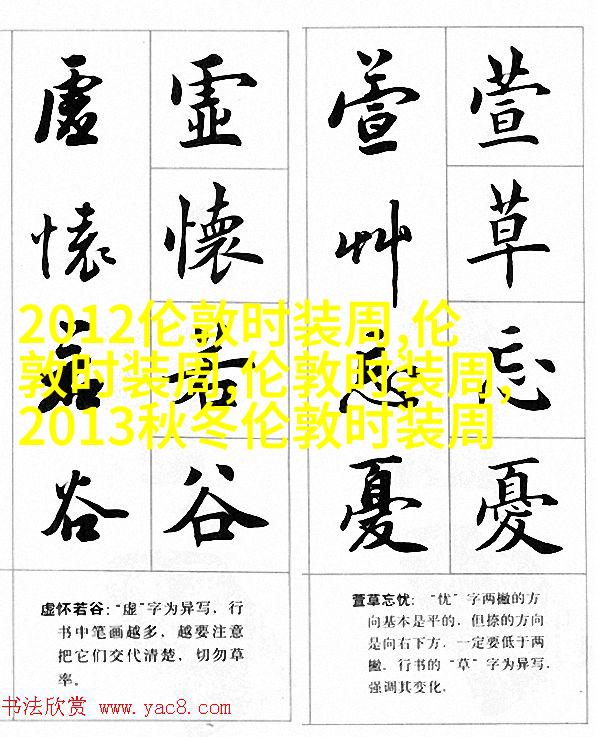 虛懷若谷
虛懷若谷
萱草忘憂
萱草忘憂
2012伦敦时装周,伦
敦时装周,伦敦时装周,
2013秋冬伦敦时装周
虚怀若谷：“虚”字为异写，行
书中笔画越多，越要注意
把它们交代清楚，切勿草
率。
萱草忘忧：“忧”字两撇的方
向基本是平的，但捺的方向
是向右下方，一定要低于两
撇。行书的“草”字为异写，
强调其变化。
书法欣赏 www.yac8.com